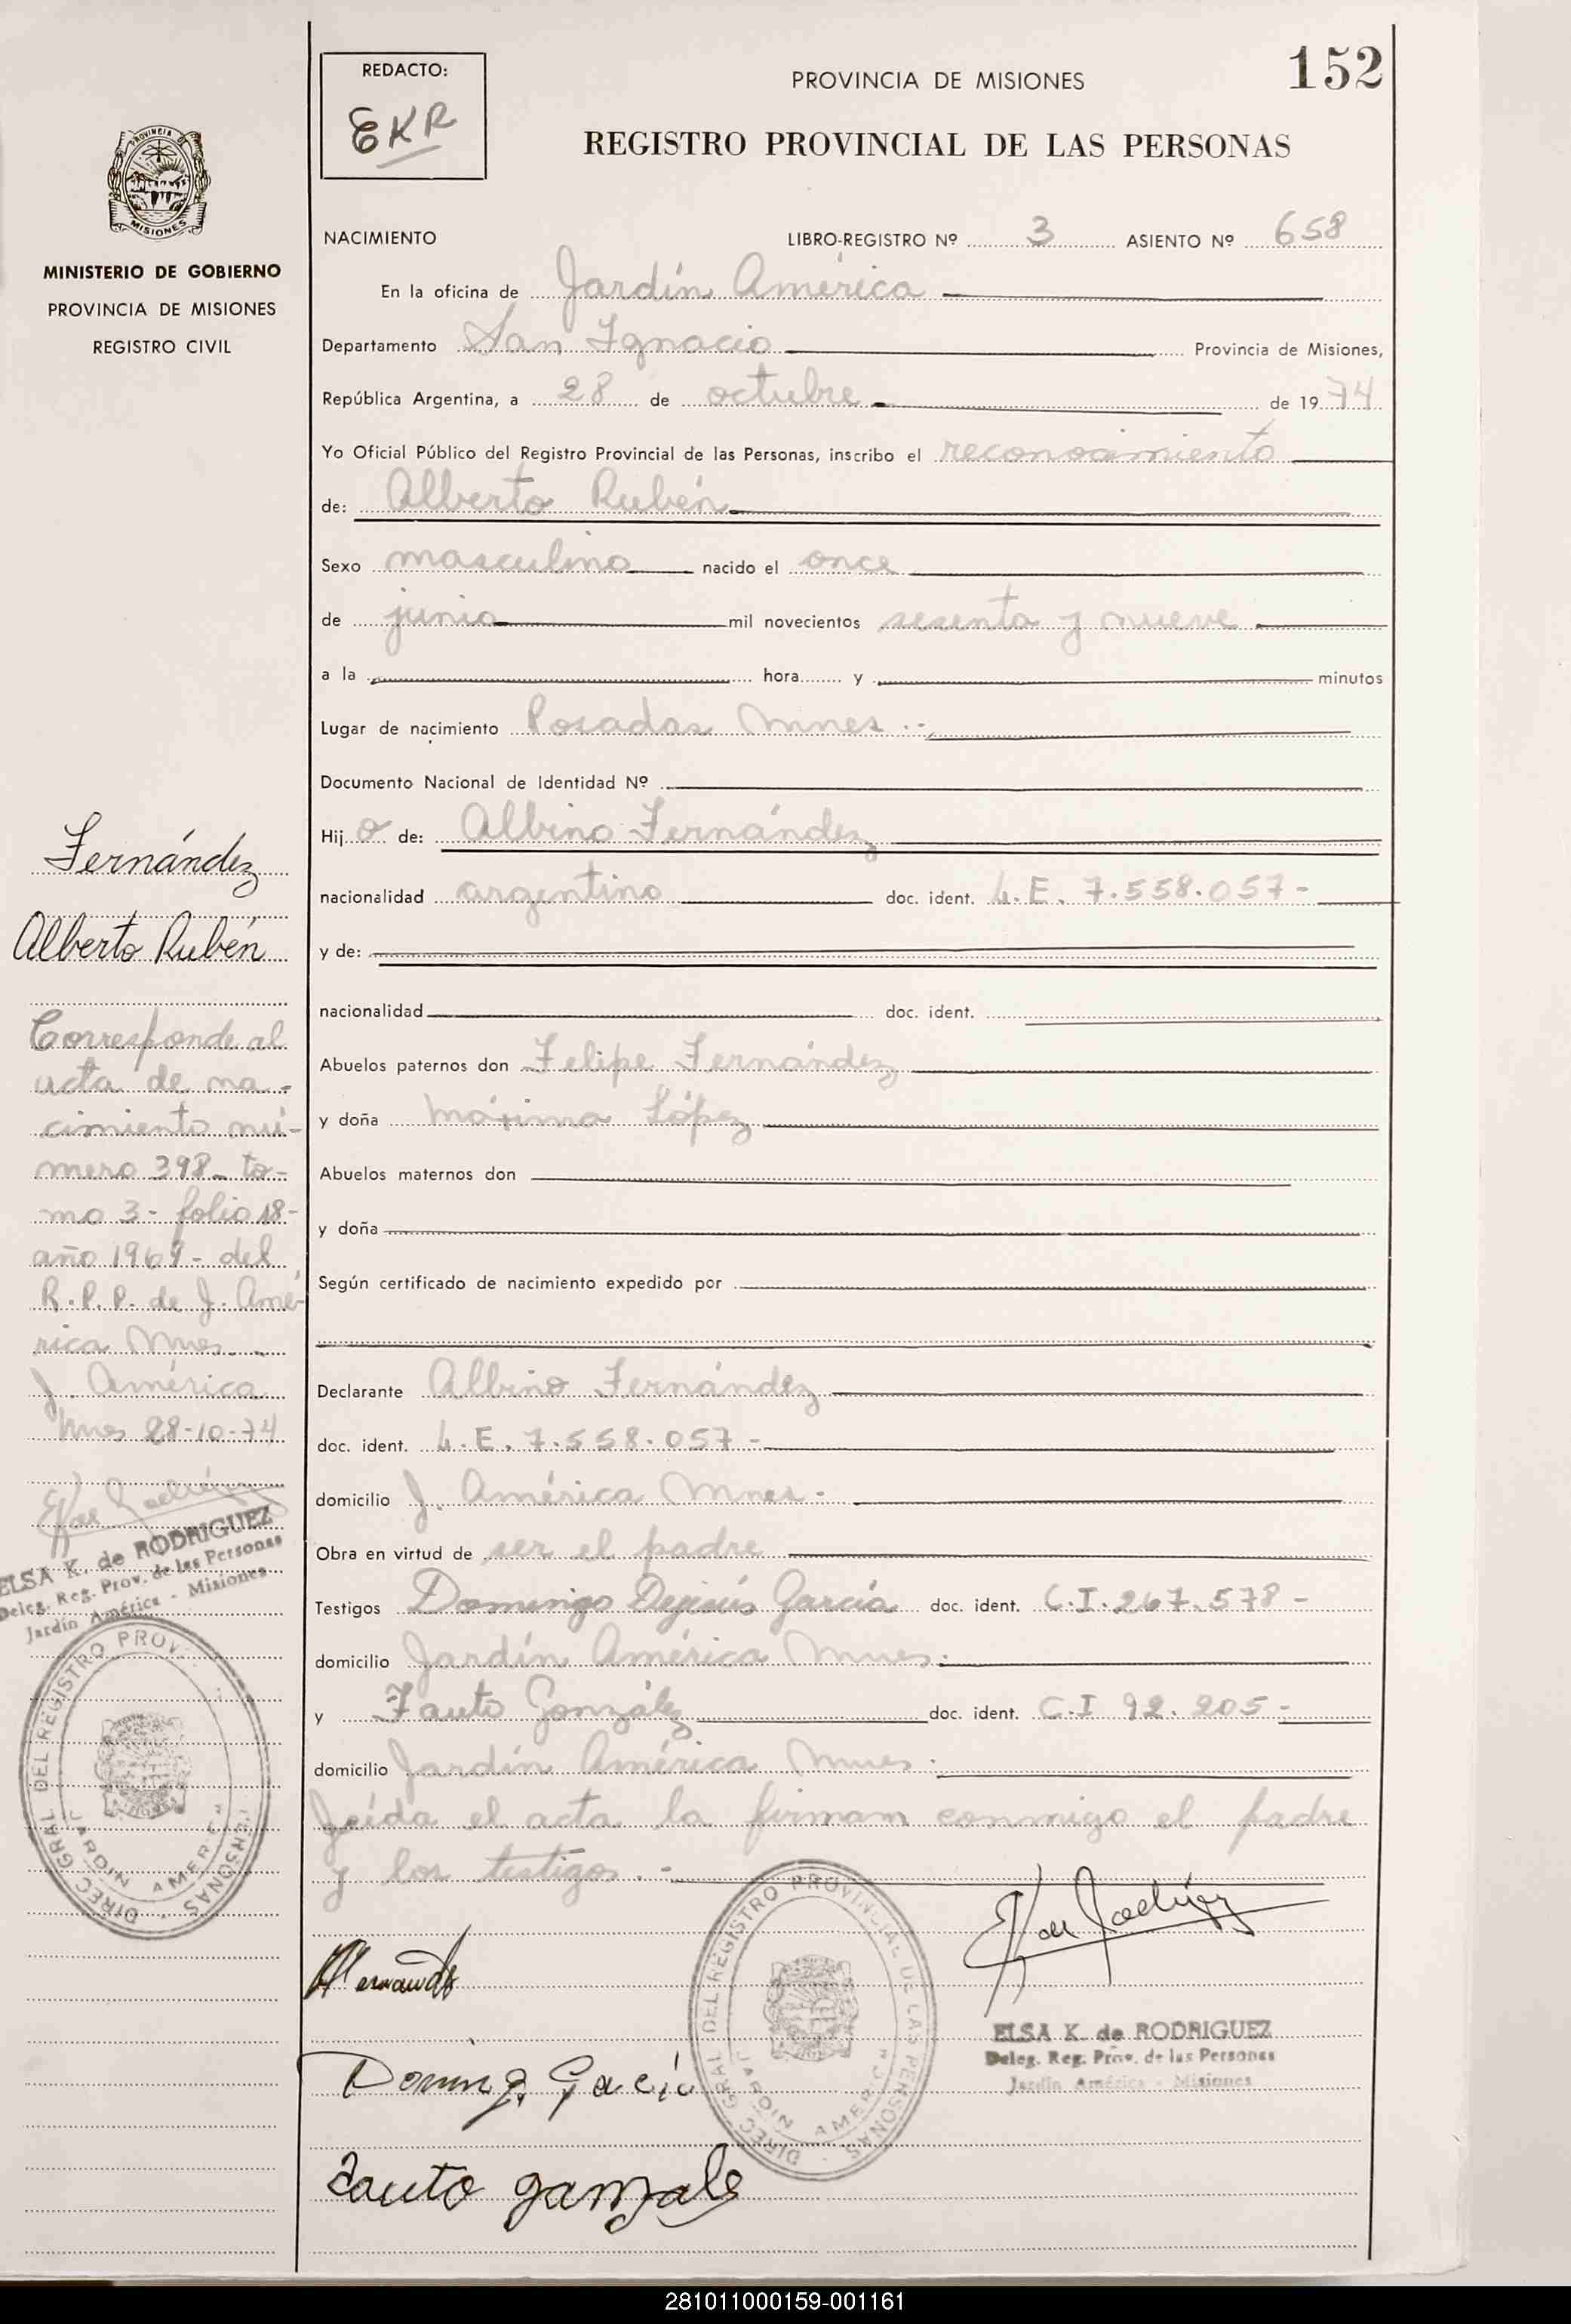 152
REDACTO:
EKR
PROVINCIA DE MISIONES
REGISTRO PROVINCIAL DE LAS PERSONAS
PROVINCIA DE MISIONES
MINISTERIO DE GOBIERNO
PROVINCIA DE MISIONES
REGISTRO CIVIL
Fernández
Alberto Rubén
Corresponde al
acta de na-
cimiento nú-
mero 398 - to-
mo 3 - folio 18-
año 1969 - del
R.P.P. de J. Amé-
rica Mnes.-
J. América
Mnes 28-10-74
ELSA K. de RODRIGUEZ
Deleg. Reg. Prov. de las Personas
Jardín América - Misiones
DIREC GRAL DEL REGISTRO PROV. PERSONAS
JARDIN AMERICA
NACIMIENTO LIBRO-REGISTRO Nº 3 ASIENTO Nº 658
En la oficina de Jardín América
Departamento San Ignacio Provincia de Misiones,
República Argentina, a 28 de octubre de 1974
Yo Oficial Público del Registro Provincial de las Personas, inscribo el reconocimiento
de: Alberto Rubén
Sexo masculino nacido el once
de junio mil novecientos sesenta y nueve
a la hora y minutos
Lugar de nacimiento Posadas Mnes.-
Documento Nacional de Identidad Nº
Hijo de: Albino Fernández
nacionalidad argentino doc. ident. L.E. 7.558.057-
y de:
nacionalidad doc. ident.
Abuelos paternos don Felipe Fernández
y doña Máxima López
Abuelos maternos don
y doña
Según certificado de nacimiento expedido por
Declarante Albino Fernández
doc. ident. L.E. 7.558.057-
domicilio J. América Mnes.
Obra en virtud de ser el padre
Testigos Domingo Dejesús García doc. ident. C.I. 267.578-
domicilio Jardín América Mnes.
y Fauto González doc. ident. C.I 92.205-
domicilio Jardín América Mnes.
Leída el acta la firman conmigo el padre
y los testigos.-
DIREC GRAL DEL REGISTRO PROVINCIAL DE LAS PERSONAS
JARDIN AMERICA
ELSA K. de RODRIGUEZ
Deleg. Reg. Prov. de las Personas
Jardín América - Misiones
Fauto ganzale
281011000159-001161